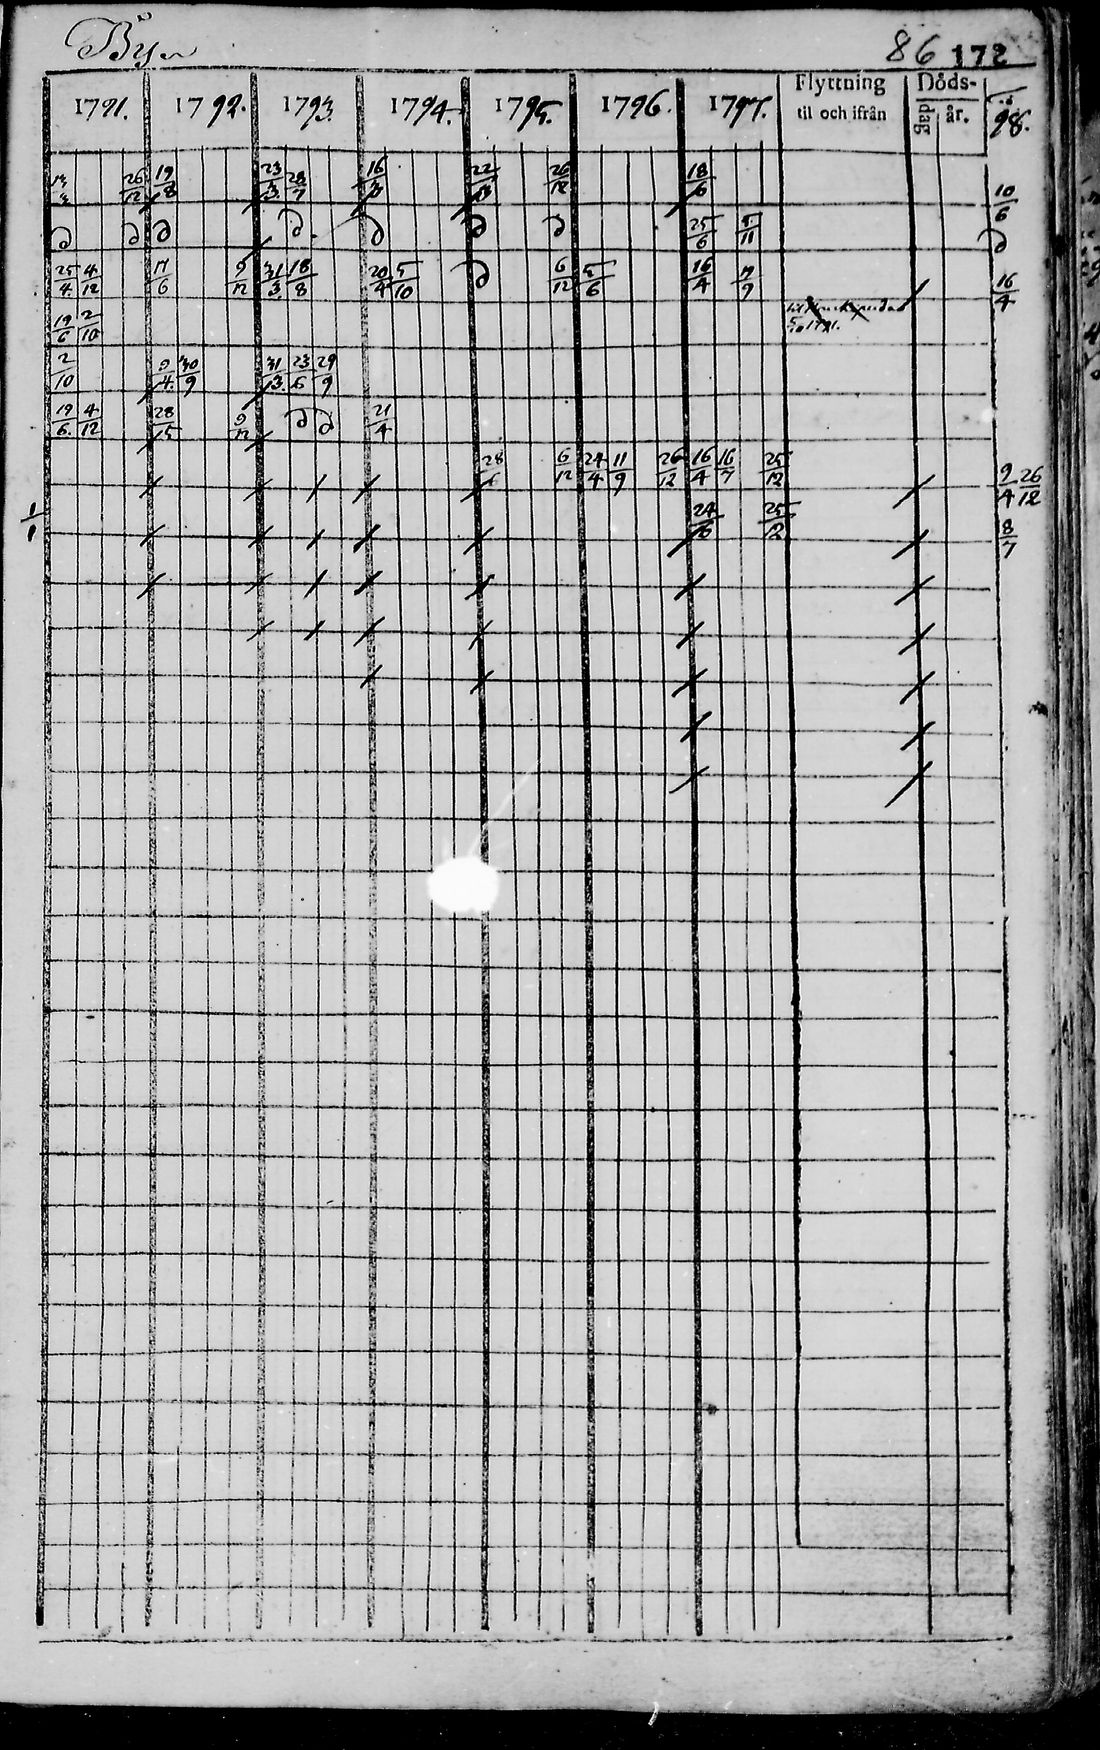 Byn
86 172
1791. 1792. 1793. 1794. 1795. 1796. 1797. Flyttning til och ifrån Döds- dag år. 98.
26/12 19/8 23/3 28/7 16/3 22/3 26/12 18/6 10/6
d d d d d d d 25/6 5/11 d
25/4 4/12 17/6 9/12 31/3 18/8 20/4 5/10 d 6/12 5/6 16/4 7/9 16/4
19/6 2/10 1791.
2/10 9/4 30/9 31/3 23/6 29/9
19/6 4/12 28/5 9/12 d d 21/4
28/6 6/12 24/4 11/9 26/12 16/4 16/7 25/12 9/4 26/12
1/1 24/6 25/12 8/7